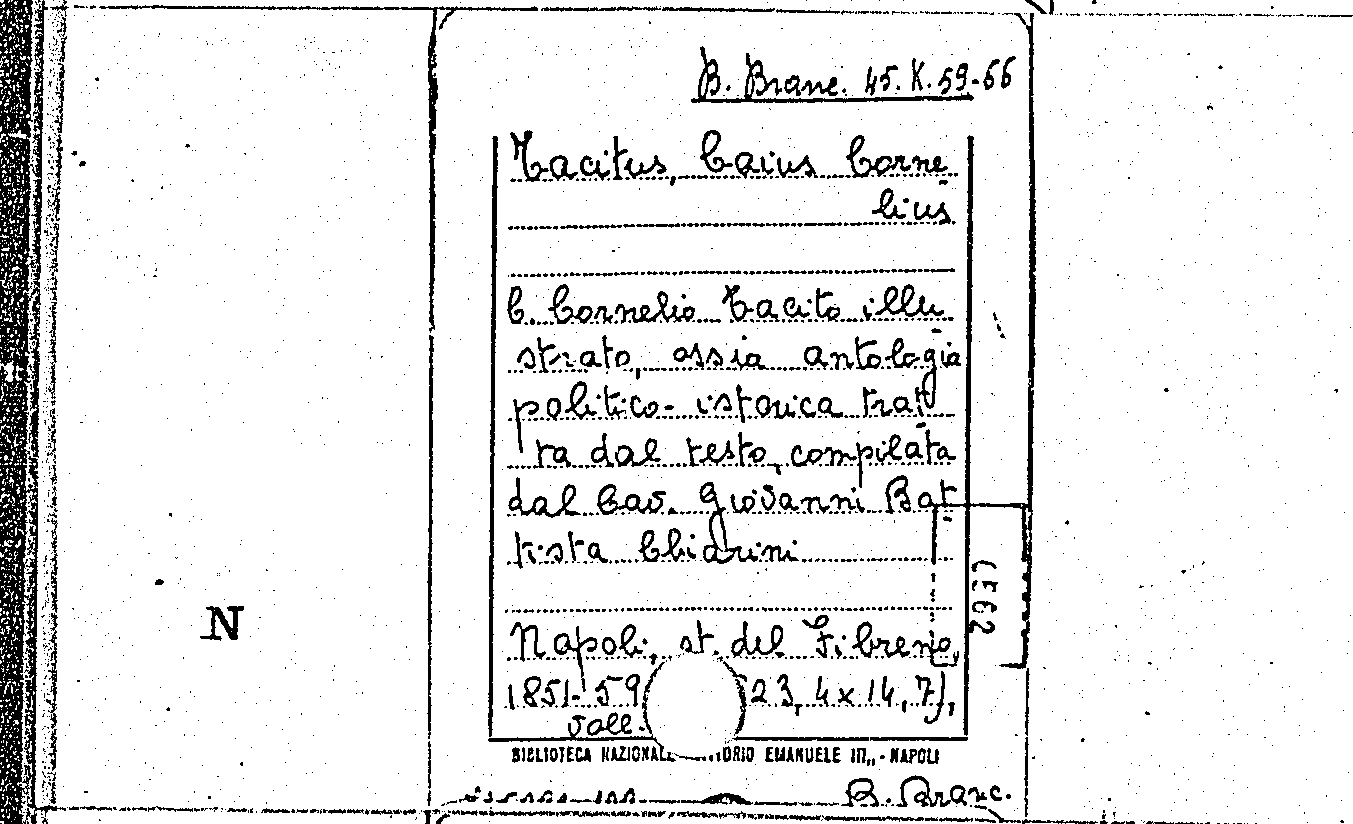 B. Branc. 45. K. 59-66
Tacitus, Caius Corne
lius
C. Cornelio Tacito illu
strato, ossia antologia
politico-istorica trat
ta dal testo, compilata
dal Cav. Giovanni Bat
tista Chiarini
N
Napoli, st. del Fibreno,
1851-59 23,4x14,7),
voll.
BIBLIOTECA NAZIONALE EMANUELE III,, - NAPOLI
B. Branc.